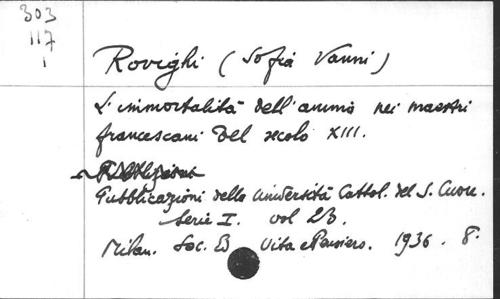 303
117
1
Rovighi (Sofia Vanni)
L'immortalità dell'anima nei maestri
francescani del secolo XIII.
Pubblicazioni della Università Cattol. del S. Cuore.
Serie I. vol 23.
Milan. Soc. Ed Vita e Pensiero. 1936. 8.